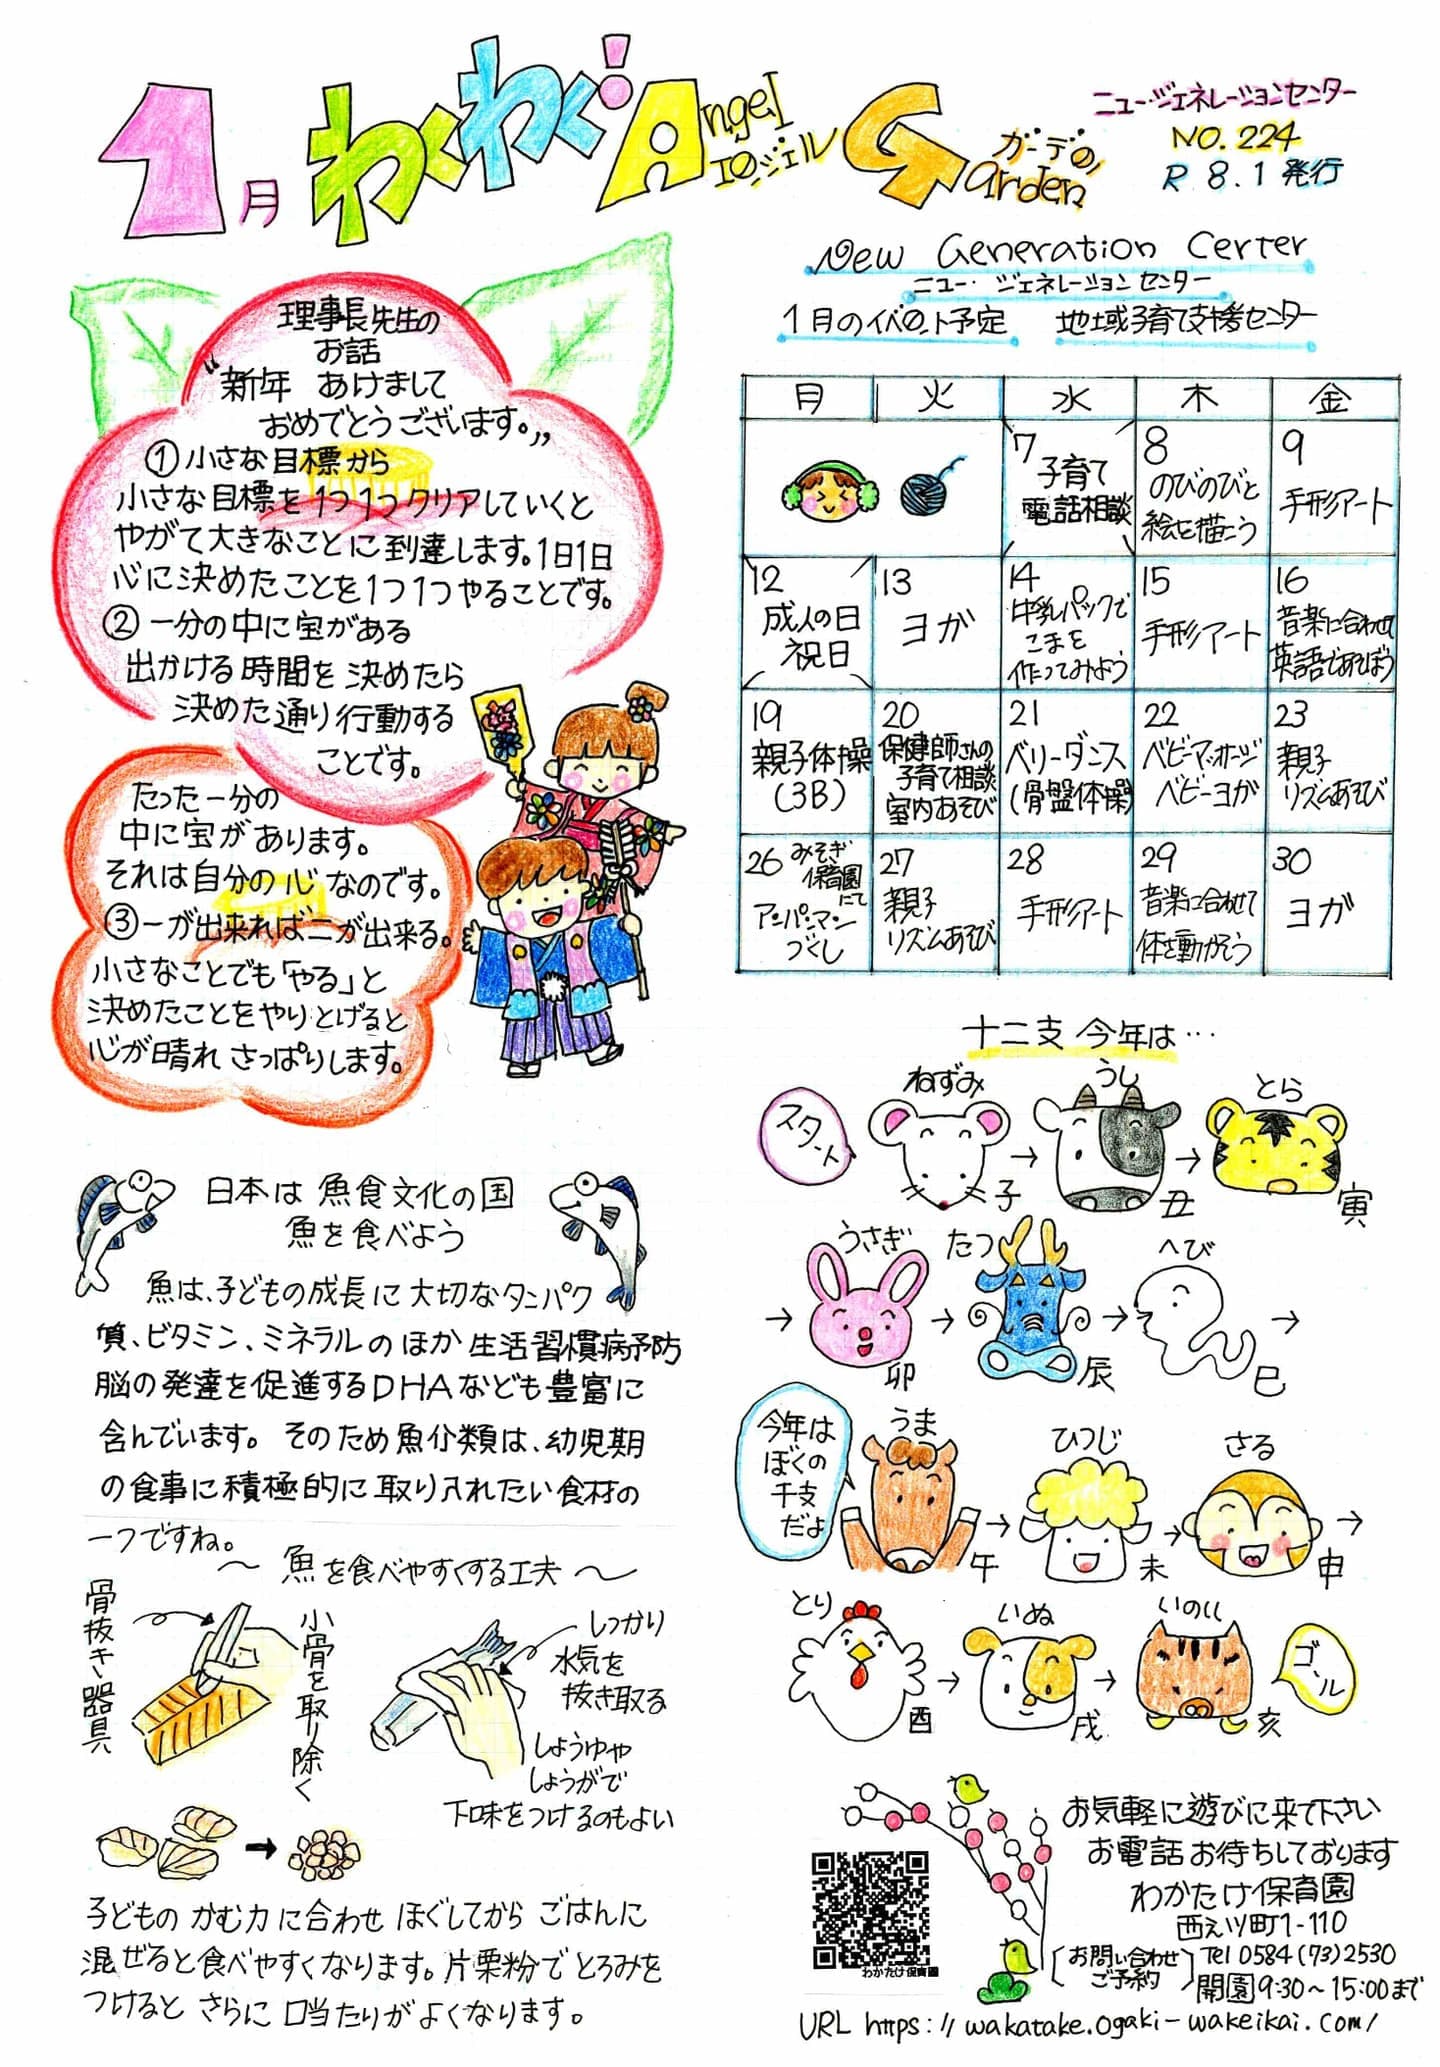 1月 わくわく! Angel エンジェル Garden ガーデン
ニュー・ジェネレーションセンター
NO.224
R 8.1 発行
理事長先生の
お話
"新年 あけまして
おめでとうございます。"
①小さな目標から
小さな目標を1つ1つクリアしていくと
やがて大きなことに到達します。1日1日
心に決めたことを1つ1つやることです。
②一分の中に宝がある
出かける時間を決めたら
決めた通り行動する
ことです。
たった一分の
中に宝があります。
それは自分の心なのです。
③一が出来れば二が出来る。
小さなことでも「やる」と
決めたことをやりとげると
心が晴れさっぱりします。
日本は魚食文化の国
魚を食べよう
魚は、子どもの成長に大切なタンパク
質、ビタミン、ミネラルのほか生活習慣病予防
脳の発達を促進するDHAなども豊富に
含んでいます。そのため魚介類は、幼児期
の食事に積極的に取り入れたい食材の
一つですね。
〜 魚を食べやすくする工夫 〜
骨抜き器具
小骨を取り除く
しっかり
水気を
抜き取る
しょうゆや
しょうがで
下味をつけるのもよい
子どものかむ力に合わせほぐしてからごはんに
混ぜると食べやすくなります。片栗粉でとろみを
つけるとさらに口当たりがよくなります。
New Generation Certer
ニュー・ジェネレーションセンター
1月のイベント予定 地域子育て支援センター
月 火 水 木 金
7 子育て
電話相談
8 のびのびと
絵を描こう
9 手形アート
12 成人の日
祝日
13 ヨガ
14 牛乳パックで
こまを
作ってみよう
15 手形アート
16 音楽に合わせて
英語であそぼう
19 親子体操
(3B)
20 保健師さんの
子育て相談
室内あそび
21 ベリーダンス
(骨盤体操)
22 ベビーマッサージ
ベビーヨガ
23 親子
リズムあそび
26 みそぎ
保育園
にて
アンパンマン
づくし
27 親子
リズムあそび
28 手形アート
29 音楽に合わせて
体を動かそう
30 ヨガ
十二支 今年は…
スタート
ねずみ 子
うし 丑
とら 寅
うさぎ 卯
たつ 辰
へび 巳
今年は
ぼくの
干支
だよ
うま 午
ひつじ 未
さる 申
とり 酉
いぬ 戌
いのしし 亥
ゴール
お気軽に遊びに来て下さい
お電話お待ちしております
わかたけ保育園
西え川町1-110
お問い合わせ
ご予約
Tel 0584(73)2530
開園9:30〜15:00まで
わかたけ保育園
URL https://wakatake.ogaki-wakeikai.com/